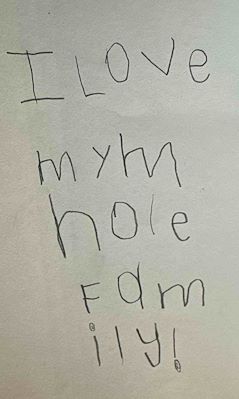 I Love
my m
hole
Fam
ily!